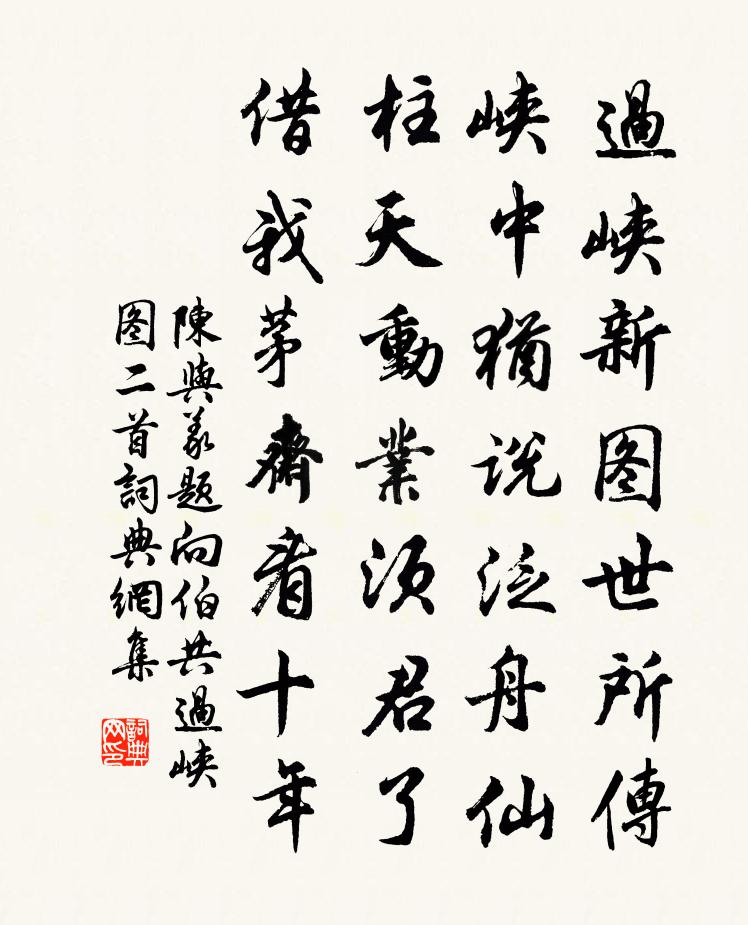 過峡新图世所傳
峡中猶说泛舟仙
柱天動業须君了
借我茅齋看十年
陳與義题向伯共過峡
图二首詞典網集
詞典
网印